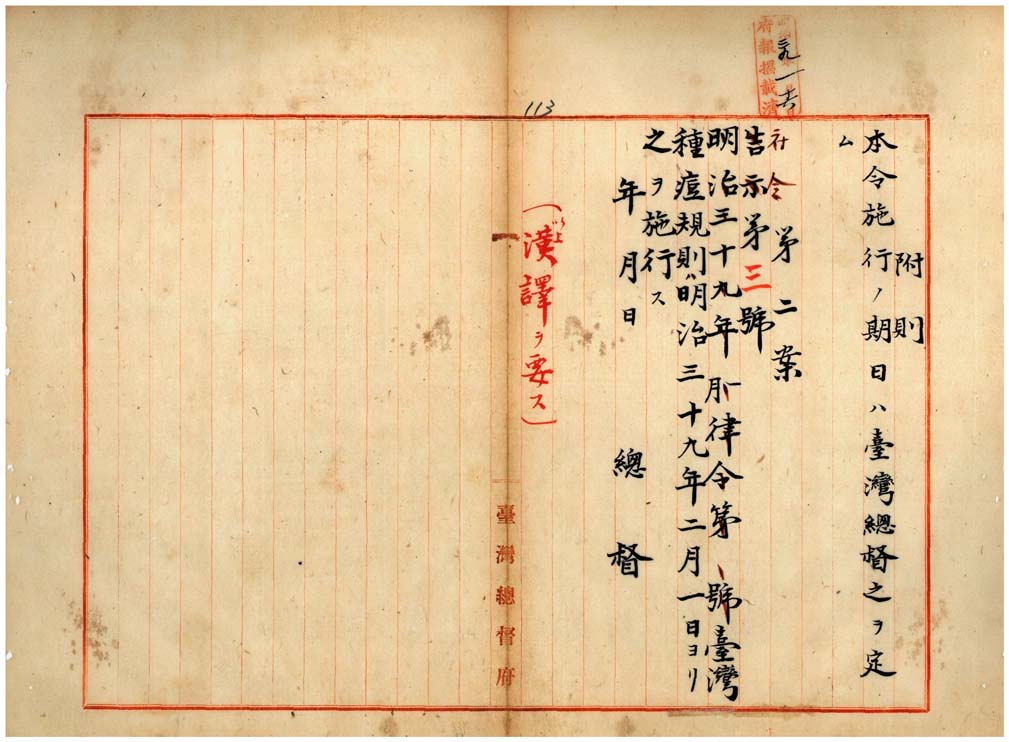 府報掲載濟
113
附則
本令施行ノ期日ハ臺灣總督之ヲ定
ム
第二案
府令
告示第三號
明治三十九年一月律令第 號臺灣
種痘規則ハ明治三十九年二月一日ヨリ
之ヲ施行ス
年月日 總督
(漢譯ヲ要ス)
臺灣總督府